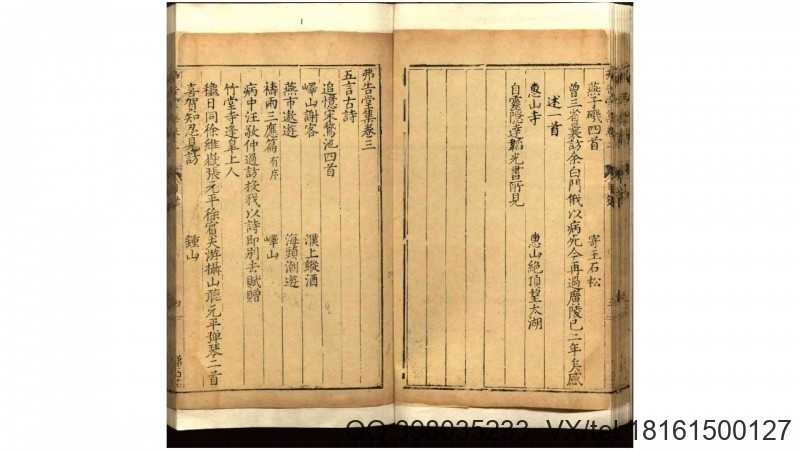 燕子磯四首 寄王石松
曾三省襄訪余白門俄以病死今再過廣陵已二年矣感
述一首
惠山寺 惠山絶頂望太湖
自靈隱達韜光書所見
弗告堂集卷三
五言古詩
追憶宋鶩池四首
嶧山謝客 濮上縱酒
燕市遨遊 海頭潮遊
禱雨三應篇有序 嶧山
病中汪敬仲過訪投我以詩即别去賦贈
竹堂寺逢皐上人
穰日同徐維嶽張元平徐賓夫游攝山聽元平彈琴二首
喜賀知忍見訪 鍾山
QQ:398035233 VX/tel:18161500127